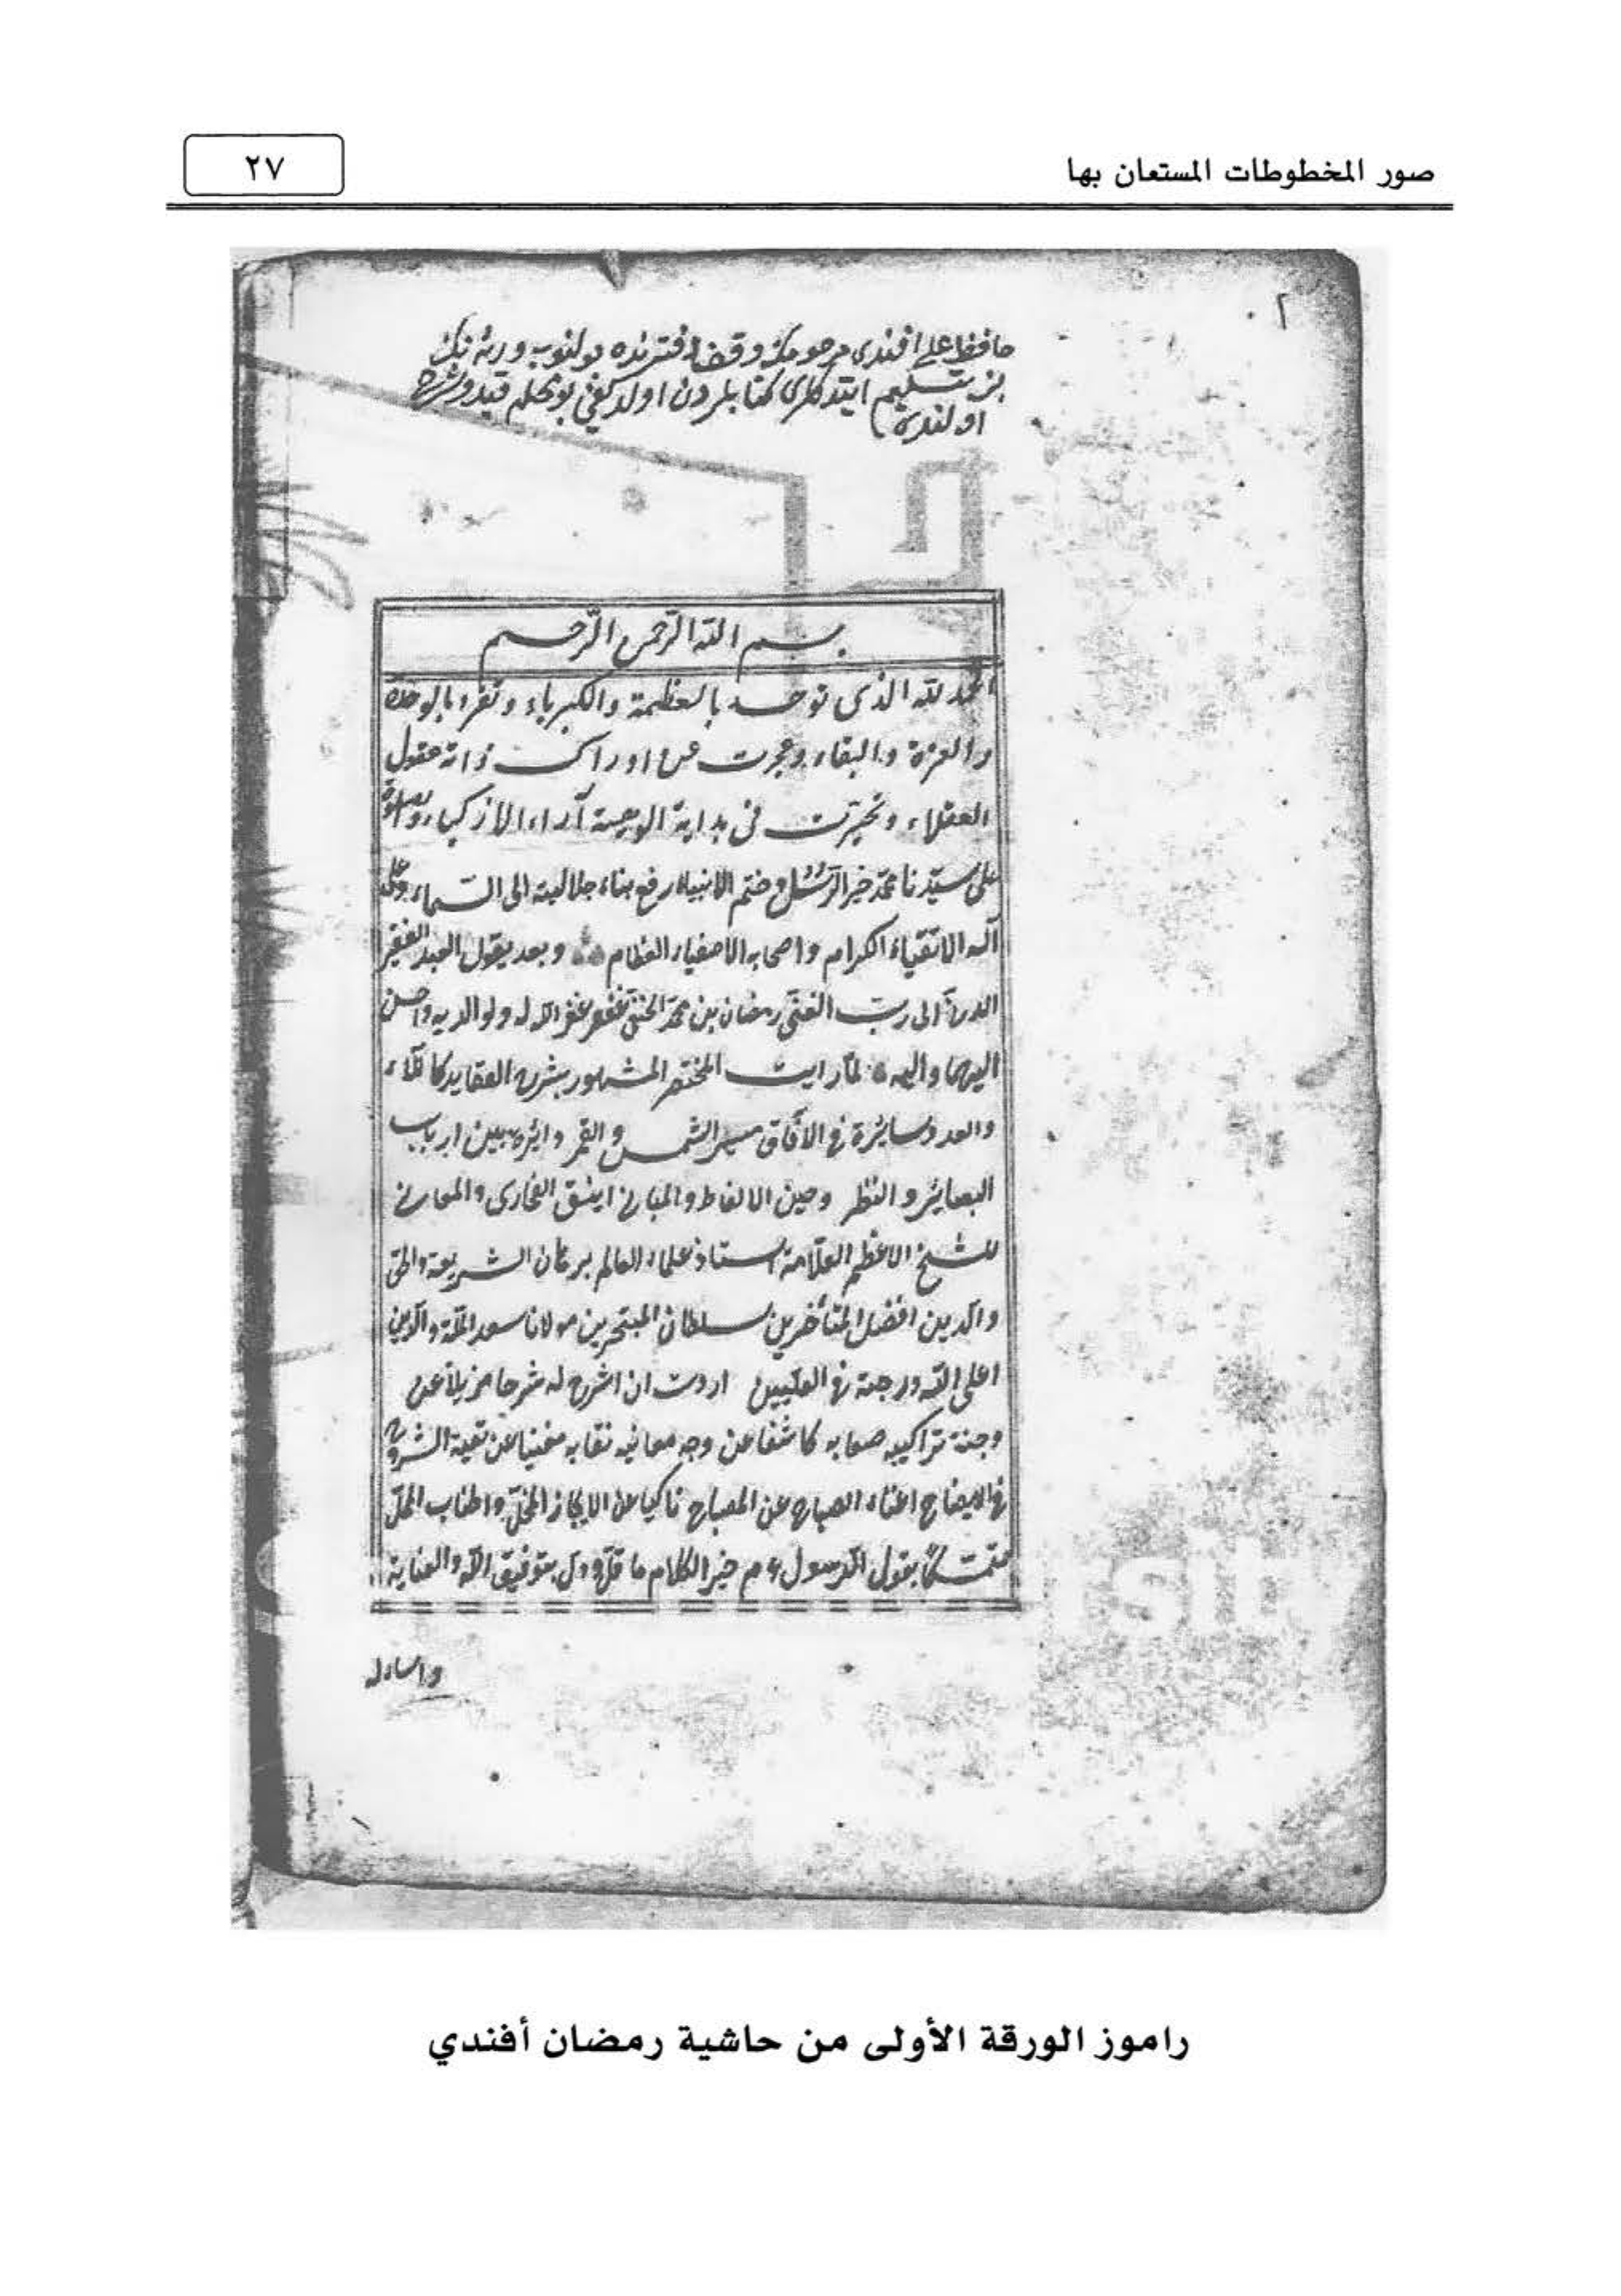 صور المخطوطات المستعان بها
٢٧
حافظ علي افندى مرحومك وقف دفترنده بولنوب ورثه نك
بزه تسليم ايتدكلرى كتابلردن اولديغنى بو محله قيد وشرح
اولندى
بسم الله الرحمن الرحيم
الحمد لله الذى توحد بالعظمة والكبرياء وتفرد بالوحدة
والعزة والبقاء وعجزت عن ادراك ذاته عقول
العقلاء وتحيرت فى بداية الوهيته آراء الازكياء والصلوة
على سيّدنا محمّد خير الرّسُل وختم الانبياء رفع بناء جلالته الى السّماء وعلى
آله الاتقياء الكرام واصحابه الاصفياء العظام وبعد يقول العبد الفقير
الى ربّه الغنىّ رمضان بن محمّد الحنفىّ غفر الله له ولوالديه واحسن
اليهما واليه لمّا رايت المختصر المشهور بشرح العقايد
سايرة فى الآفاق مسير الشمس والقمر دايرة بين ارباب
البصاير والنظر وحين الالفاظ والمبانى والمعانى
للشيخ الاعظم العلّامة استاذ علماء العالم برهان الشريعة والحق
والدين افضل المتأخرين سلطان المتبحرين مولانا سعد الملّة والدّين
اعلى الله درجته فى العليين اردت ان اشرح له شرحا مزيلا عن
وجنة تراكيبه صعابه كاشفا عن وجه معانيه نقابه مغنيا عن بقية الشروح
فى الايضاح اغناء الصباح عن المصباح عن الايجاز المخلّ واطناب المملّ
متمسكا بقول الرّسول ءم خير الكلام ما قلّ ودلّ بتوفيق اللّه والعناية
راموز الورقة الأولى من حاشية رمضان أفندي